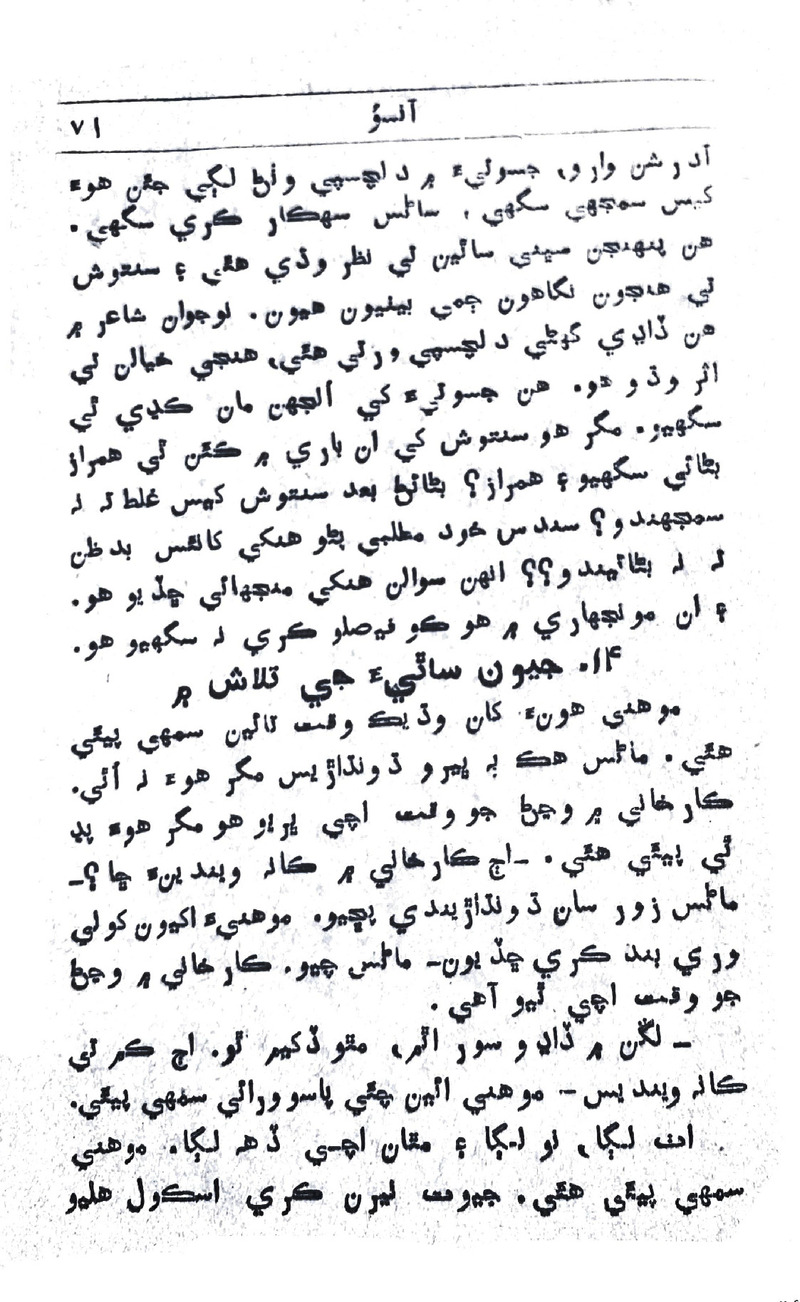 آنسؤ ٧١
آدرشن وارو، جسوتيءَ ۾ دلچسپي وٺڻ لڳي جئن هوءَ
کيس سمجهي سگهي، ساڻس سهڪار ڪري سگهي.
هن پنهنجن سڀني ساٿين تي نظر وڌي هئي ۽ سنتوش
تي هنجون نگاهون ڄمي بيٺيون هيون. نوجوان شاعر ۾
هن ڏاڍي گهڻي دلچسپي ورتي هئي، هنجي خيالن تي
اثر وڌو هو. هن جسوتيءَ کي اُلجهن مان ڪڍي ٿي
سگهيو. مگر هو سنتوش کي ان باري ۾ ڪٿن ٿي همراز
بڻائي سگهيو ۽ همراز؟ بڻائڻ بعد سنتوش کيس غلط ته نه
سمجهندو؟ سندس خود مطلبي پڻو هنکي کانئس بدظن
ته نه بڻائيندو؟؟ انهن سوالن هنکي منجهائي ڇڏيو هو.
۽ ان مونجهاري ۾ هو ڪو فيصلو ڪري نه سگهيو هو.
۱۴. جيون ساٿيءَ جي تلاش ۾
موهني هونءَ کان وڌيڪ وقت تائين سمهي پيئي
هئي. ماڻس هڪ ٻه ڀيرو ڌونڌاڙيس مگر هوءَ نه اُٿي.
ڪارخاني ۾ وڃڻ جو وقت اچي ڀريو هو مگر هوءَ پئ
ٿي پيئي هئي. –اڄ ڪارخاني ۾ ڪانه ويندينءَ ڇا؟–
ماڻس زور سان ڌونڌاڙيندي پڇيو. موهنيءَ اکيون کولي
وري بند ڪري ڇڏيون– ماڻس چيو. ڪارخاني ۾ وڃڻ
جو وقت اچي ٿيو آهي.
– لڱن ۾ ڏاڍو سور اٿم، مٿو ڏکيم ٿو. اڄ ڪم تي
ڪانه وينديس– موهني ائين چئي پاسو ورائي سمهي پيئي.
اٺ لڳا، نو لڳا ۽ مٿان اچي ڏهه لڳا. موهني
سمهي پيئي هئي. جيوت نيرن ڪري اسڪول هليو